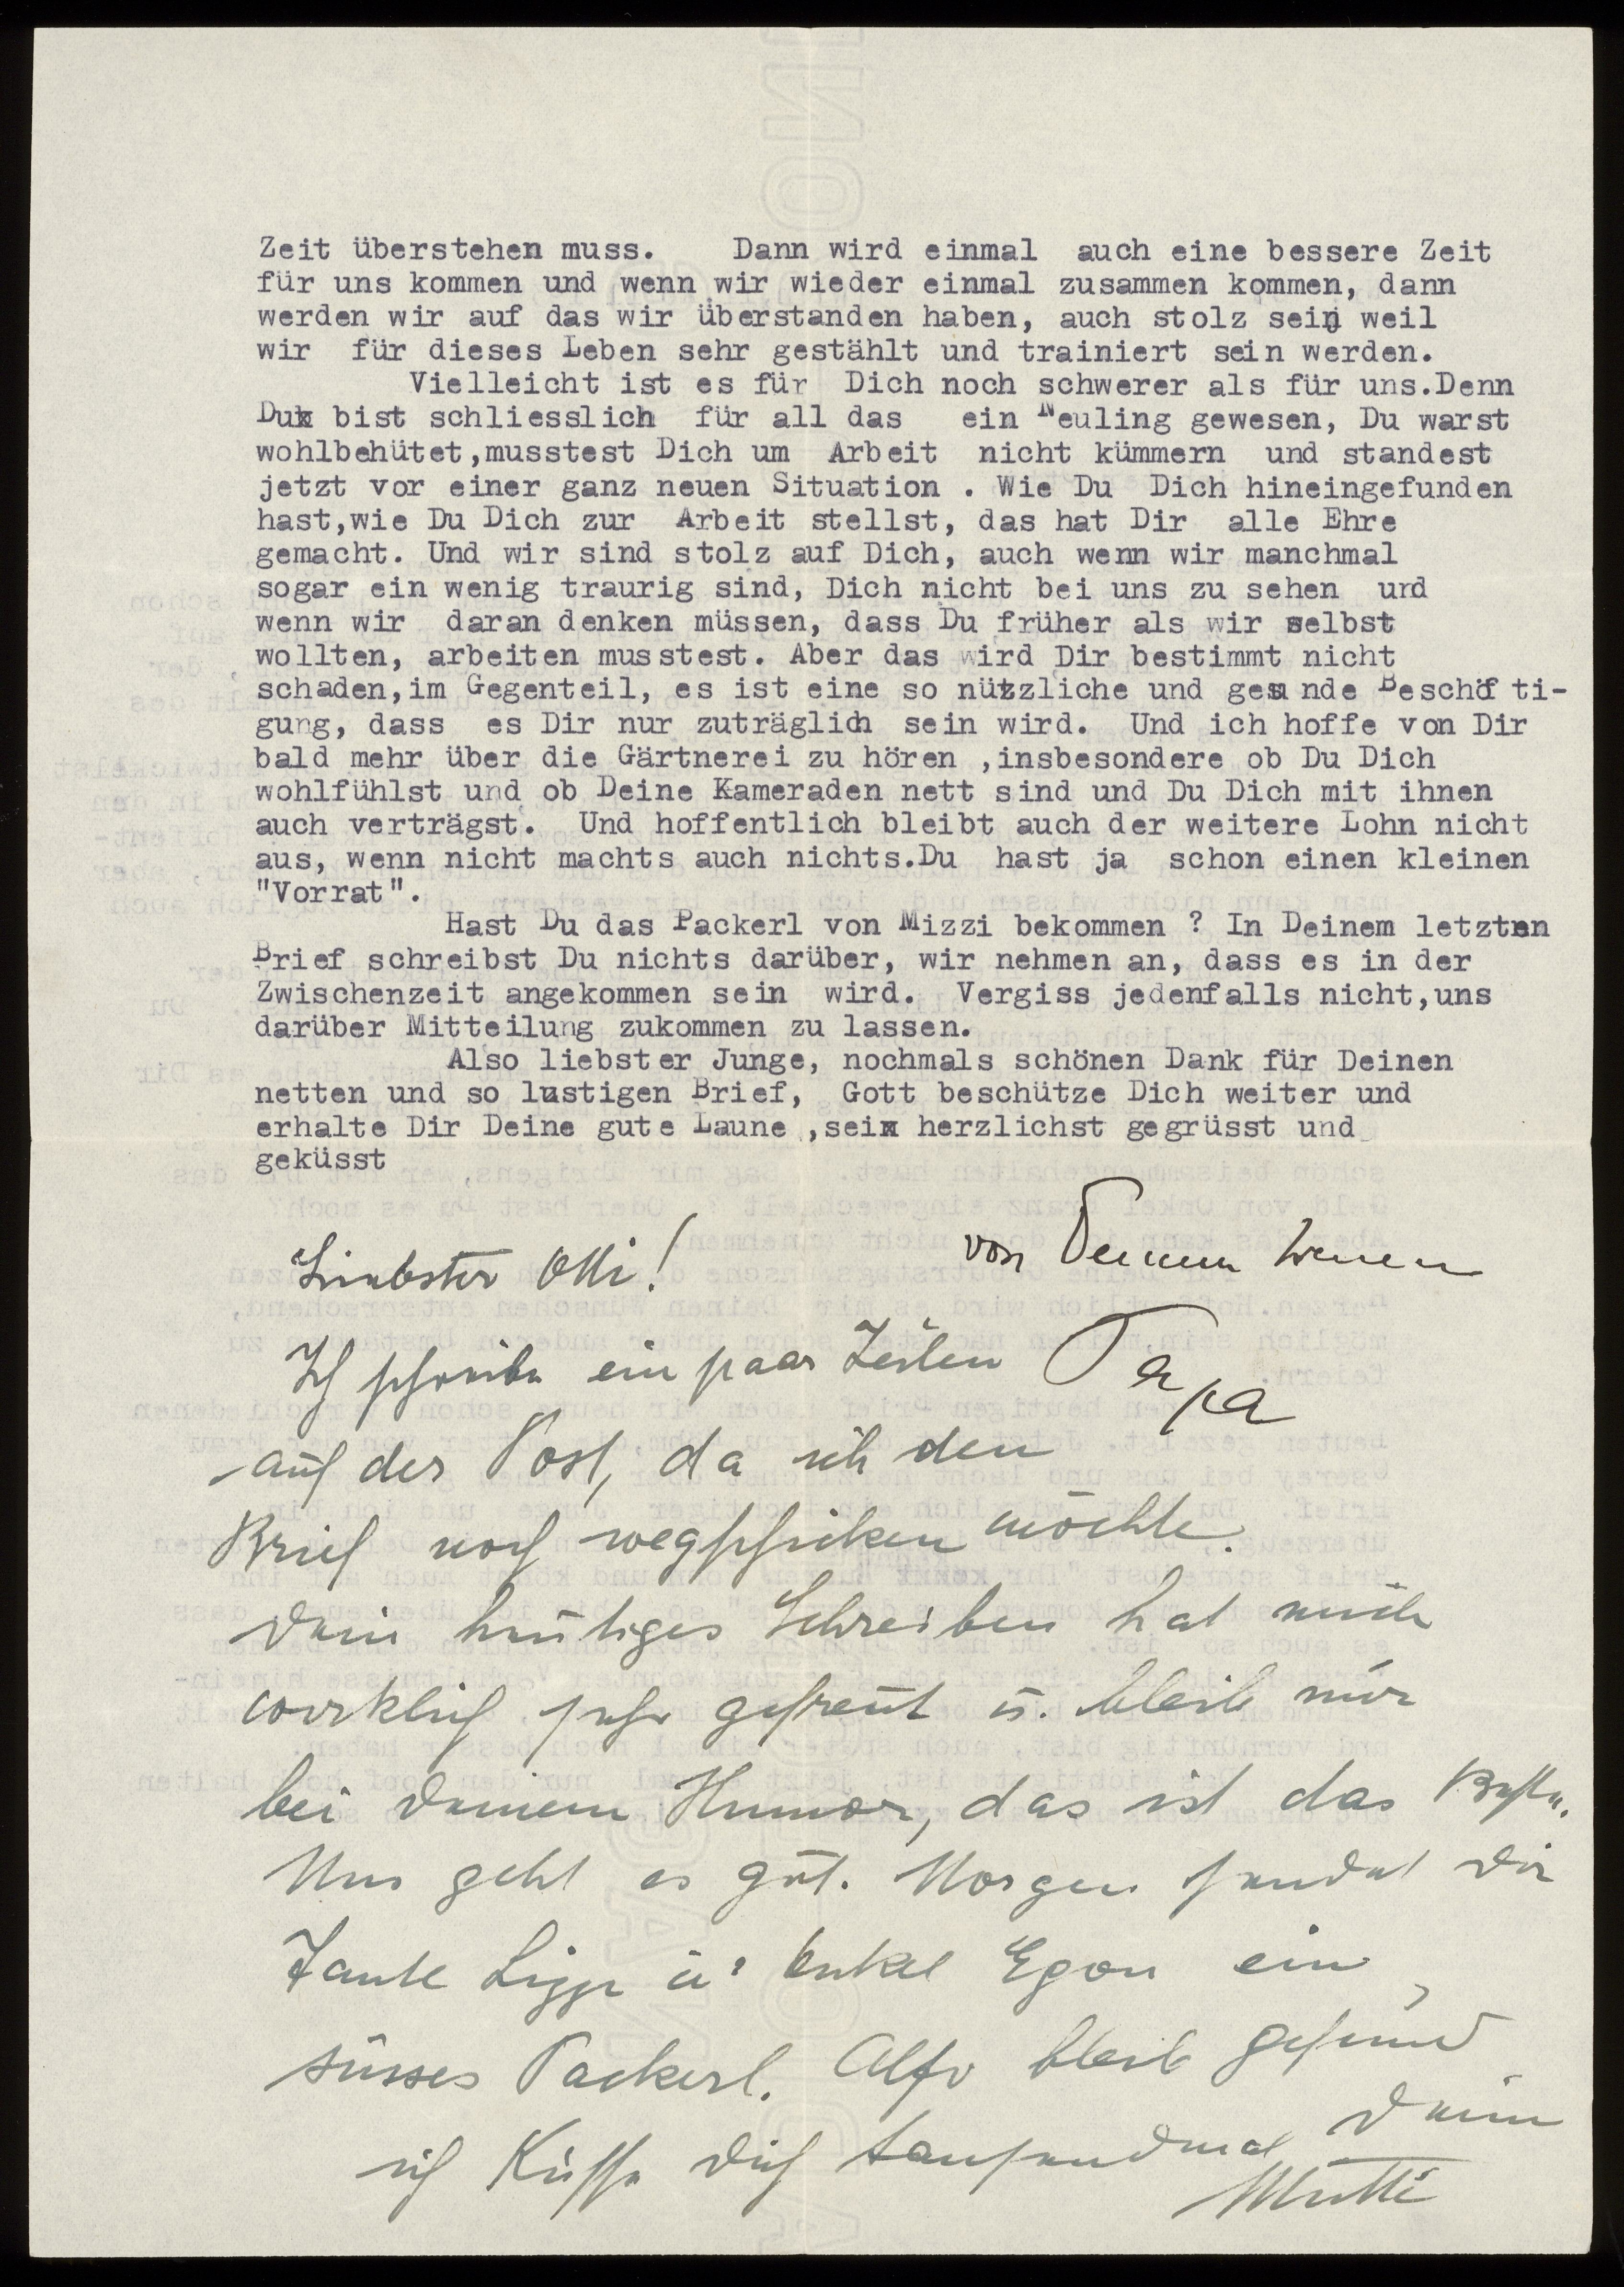 Zeit überstehen muss. Dann wird einmal auch eine bessere Zeit
für uns kommen und wenn wir wieder einmal zusammen kommen, dann
werden wir auf das wir überstanden haben, auch stolz sein weil
wir für dieses Leben sehr gestählt und trainiert sein werden.
Vielleicht ist es für Dich noch schwerer als für uns.Denn
Du bist schliesslich für all das ein Neuling gewesen, Du warst
wohlbehütet,musstest Dich um Arbeit nicht kümmern und standest
jetzt vor einer ganz neuen Situation . Wie Du Dich hineingefunden
hast,wie Du Dich zur Arbeit stellst, das hat Dir alle Ehre
gemacht. Und wir sind stolz auf Dich, auch wenn wir manchmal
sogar ein wenig traurig sind, Dich nicht bei uns zu sehen und
wenn wir daran denken müssen, dass Du früher als wir selbst
wollten, arbeiten musstest. Aber das wird Dir bestimmt nicht
schaden,im Gegenteil, es ist eine so nützliche und gesunde Beschäfti-
gung, dass es Dir nur zuträglich sein wird. Und ich hoffe von Dir
bald mehr über die Gärtnerei zu hören ,insbesondere ob Du Dich
wohlfühlst und ob Deine Kameraden nett sind und Du Dich mit ihnen
auch verträgst. Und hoffentlich bleibt auch der weitere Lohn nicht
aus, wenn nicht machts auch nichts.Du hast ja schon einen kleinen
"Vorrat".
Hast Du das Packerl von Mizzi bekommen ? In Deinem letzten
Brief schreibst Du nichts darüber, wir nehmen an, dass es in der
Zwischenzeit angekommen sein wird. Vergiss jedenfalls nicht,uns
darüber Mitteilung zukommen zu lassen.
Also liebster Junge, nochmals schönen Dank für Deinen
netten und so lustigen Brief, Gott beschütze Dich weiter und
erhalte Dir Deine gute Laune ,sei herzlichst gegrüsst und
geküsst
von Deinem treuen
Papa
Liebster Otti!
Ich schreibe ein paar Zeilen
auf der Post, da ich den
Brief noch wegschicken möchte.
Dein heutiges Schreiben hat mich
wirklich sehr gefreut u. bleib nur
bei Deinem Humor, das ist das Beste.
Uns geht es gut. Morgen sendet Dir
Tante u. Onkel Egon ein
süsses Packerl. Also bleib gesund
ich küsse Dich tausendmal Deine
Mutti